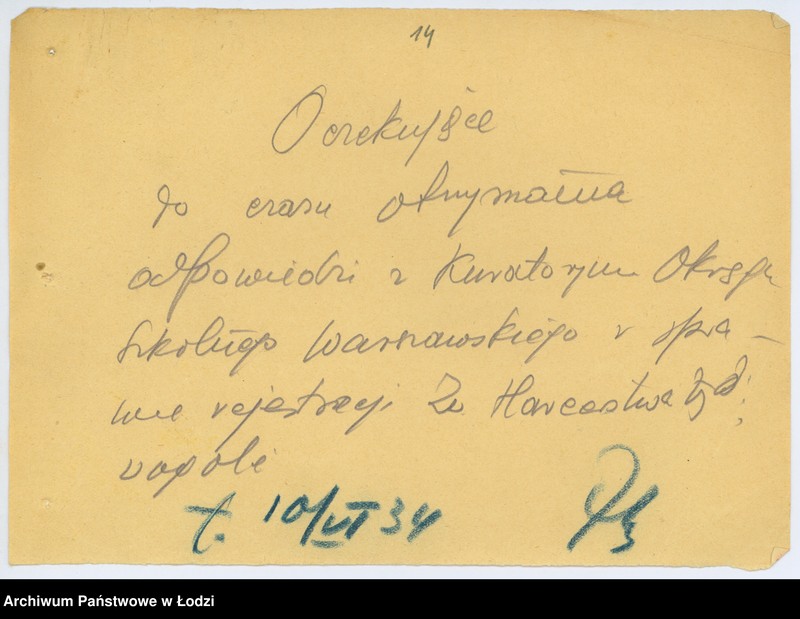 14
Oczekujące
do czasu otrzymania
odpowiedzi z Kuratorjum Okręgu
Szkolnego Warszawskiego w spra-
wie rejestracji Zw Harcerstwa Żyd.
w opole
Ł. 10/VI 34
Archiwum Państwowe w Łodzi